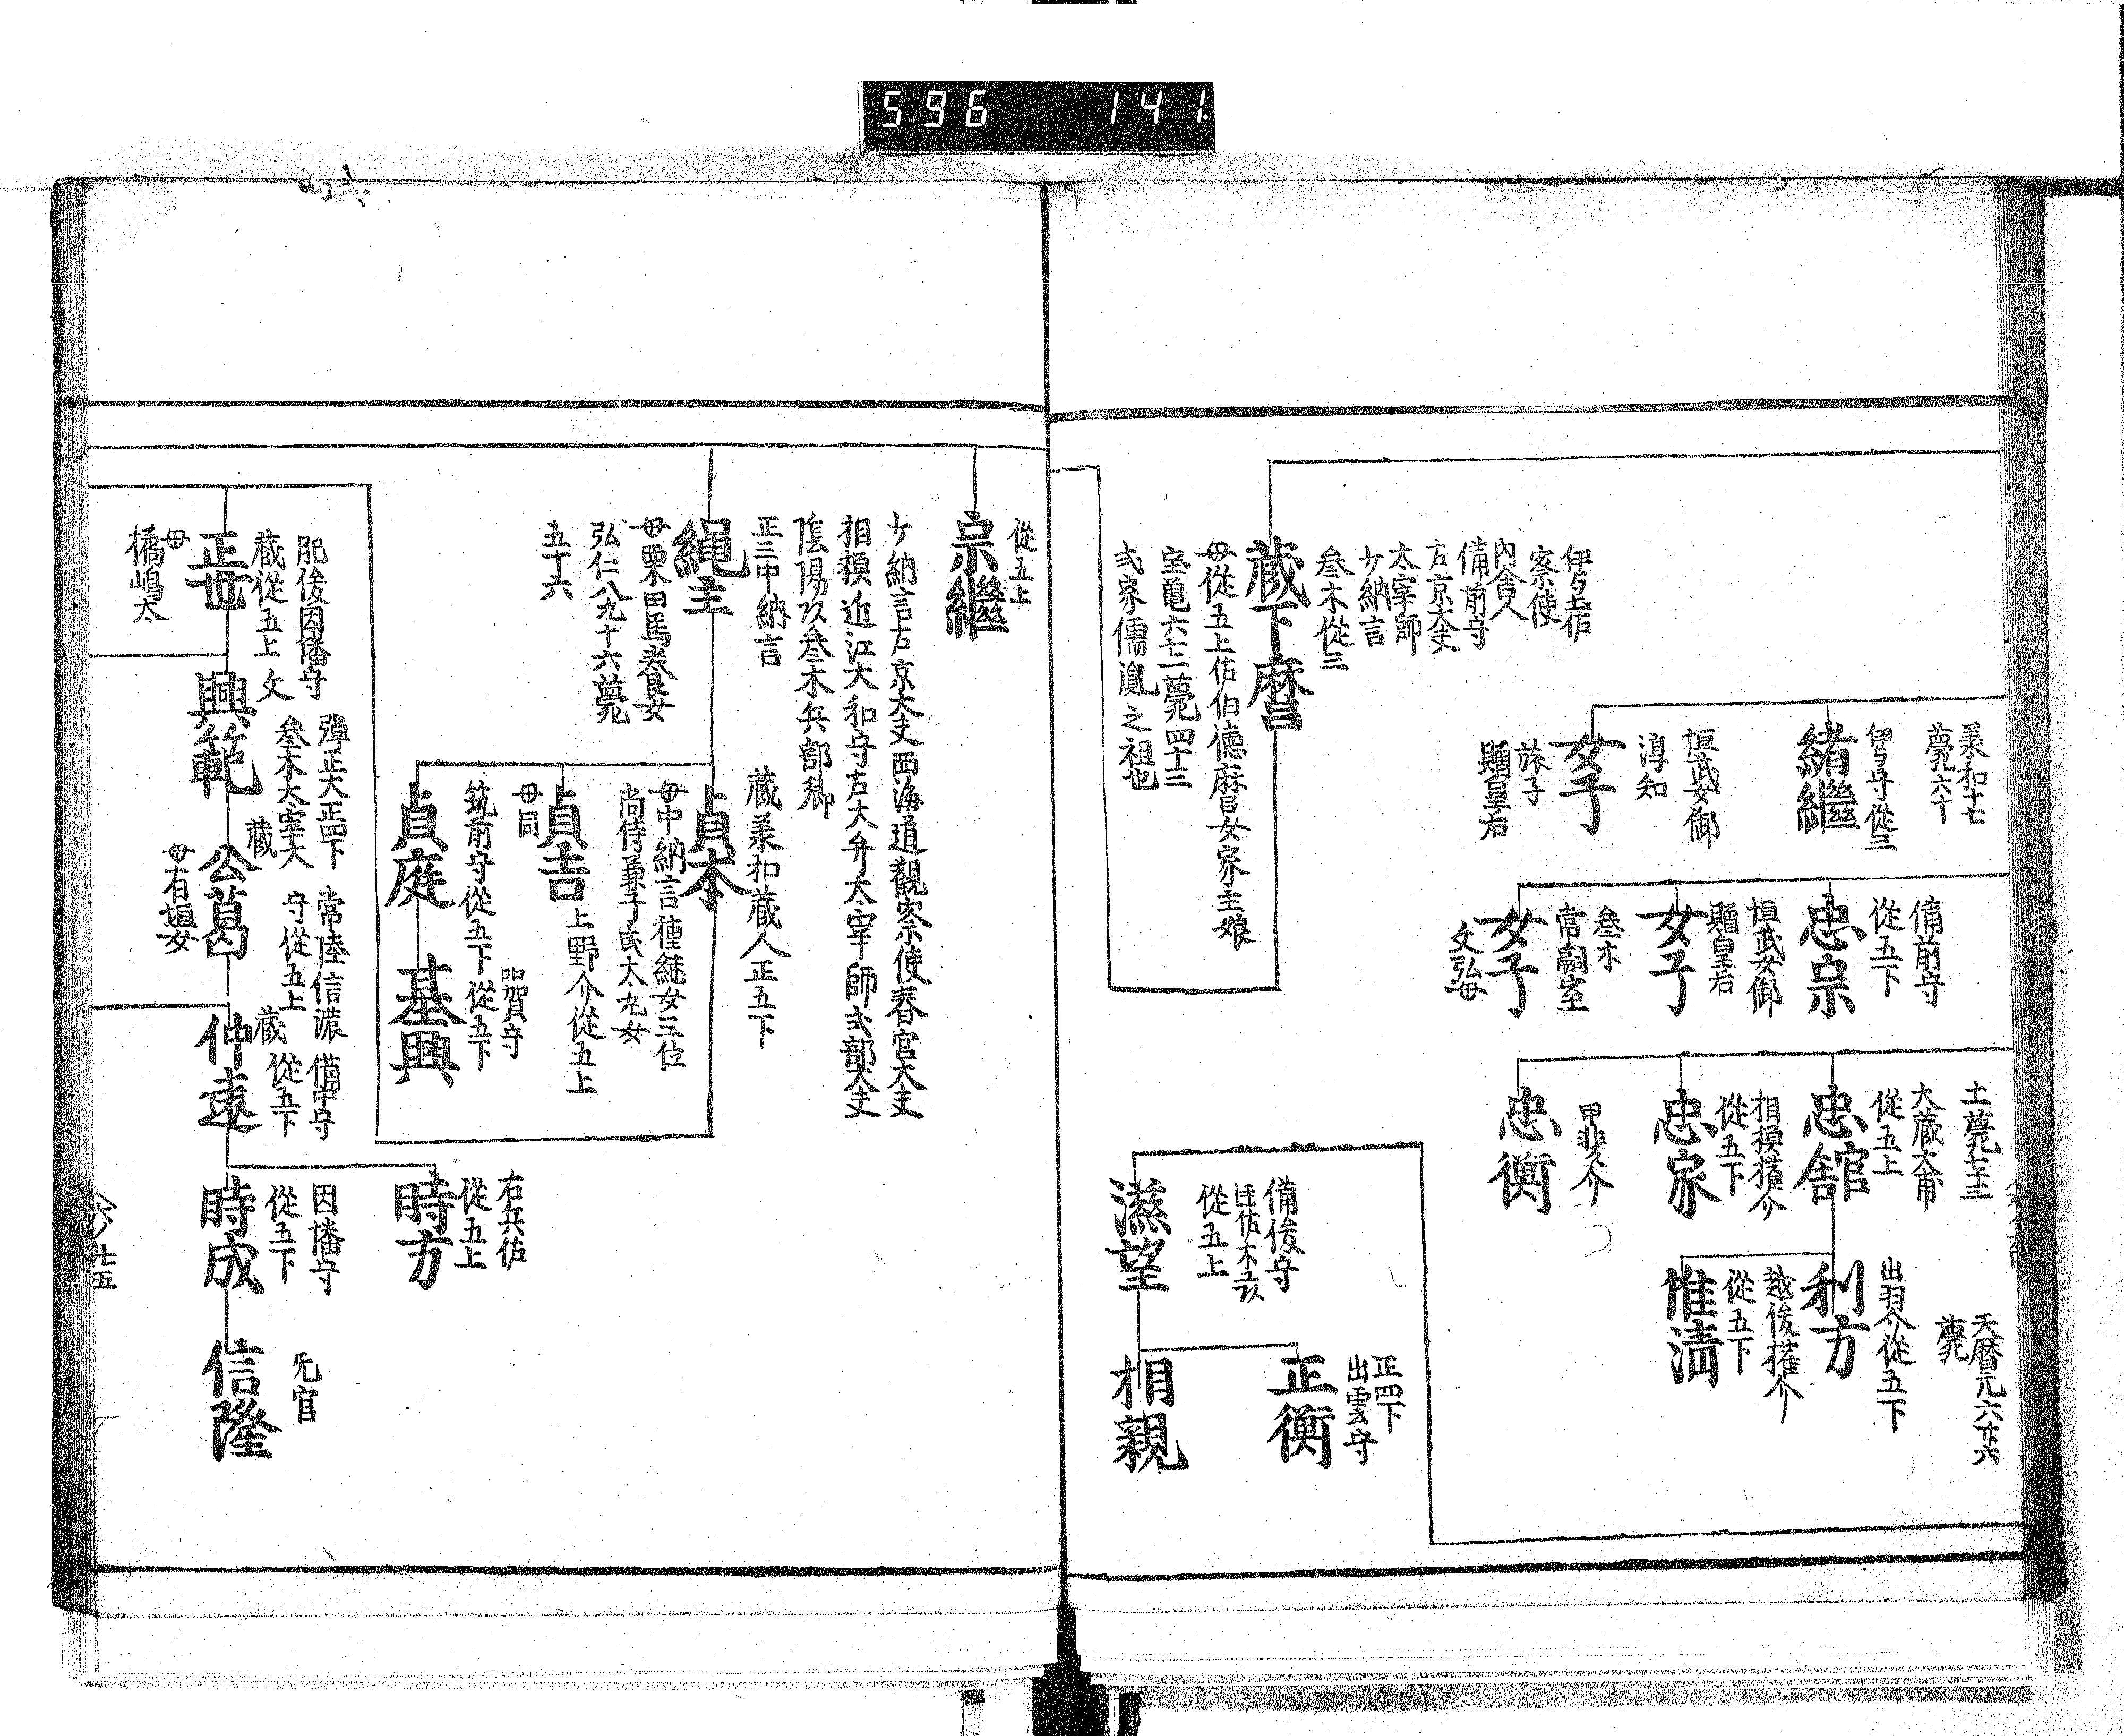 596 141
兼和十七
薨六十
伊与守從三
緒繼
恒武女御
淳知
女子
旅子
贈皇后
備前守
從五下
忠宗
恒武女御
贈皇后
女子
叁木
常嗣室
女子
文弘母
土薨七十三
大蔵大甫
從五上
忠舘
相摸權介
從五下
忠家
甲斐介
忠衡
天曆元六廾六
薨
出羽介從五下
利方
越後權介
從五下
惟清
伊与土佐
察使
內舍人
備前守
右京大夫
太宰師
少納言
叁木從三
蔵下麿
母從五上佐伯德麻呂女家主娘
宝亀六七一薨四十二
式家儒胤之祖也
備後守
從五上
滋望
正四下
出雲守
正衡
相親
從五上
宗繼
少納言右京大夫西海道觀察使春宮大夫
相摸近江大和守右大弁太宰師式部大夫
陰陽以叁木兵部卿
正三中納言
繩主
母栗田馬養良女
弘仁八九十六薨
五十六
蔵兼和蔵人正五下
貞本
母中納言種継女三位
尚侍兼子或太丸女
貞吉
上野介從五上
母同
筑前守從五下
貞庭
賀守
從五下
基興
肥後因播守
蔵從五上
文
正世
母
橘嶋太
彈正大正四下
叁木太宰大
興範
常陸信濃
守從五上
蔵
公葛
母有垣女
備中守
從五下
蔵
仲遠
右兵佐
從五上
時方
因播守
從五下
時成
无官
信隆
七五